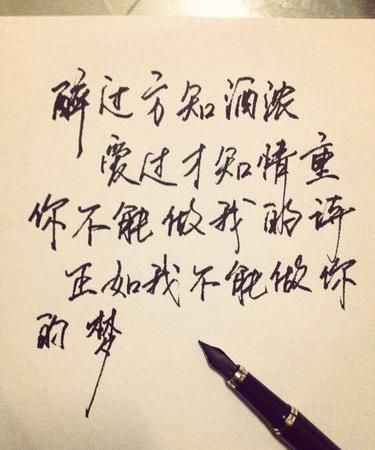 醉过方知酒浓
爱过才知情重
你不能做我的诗
正如我不能做你
的梦